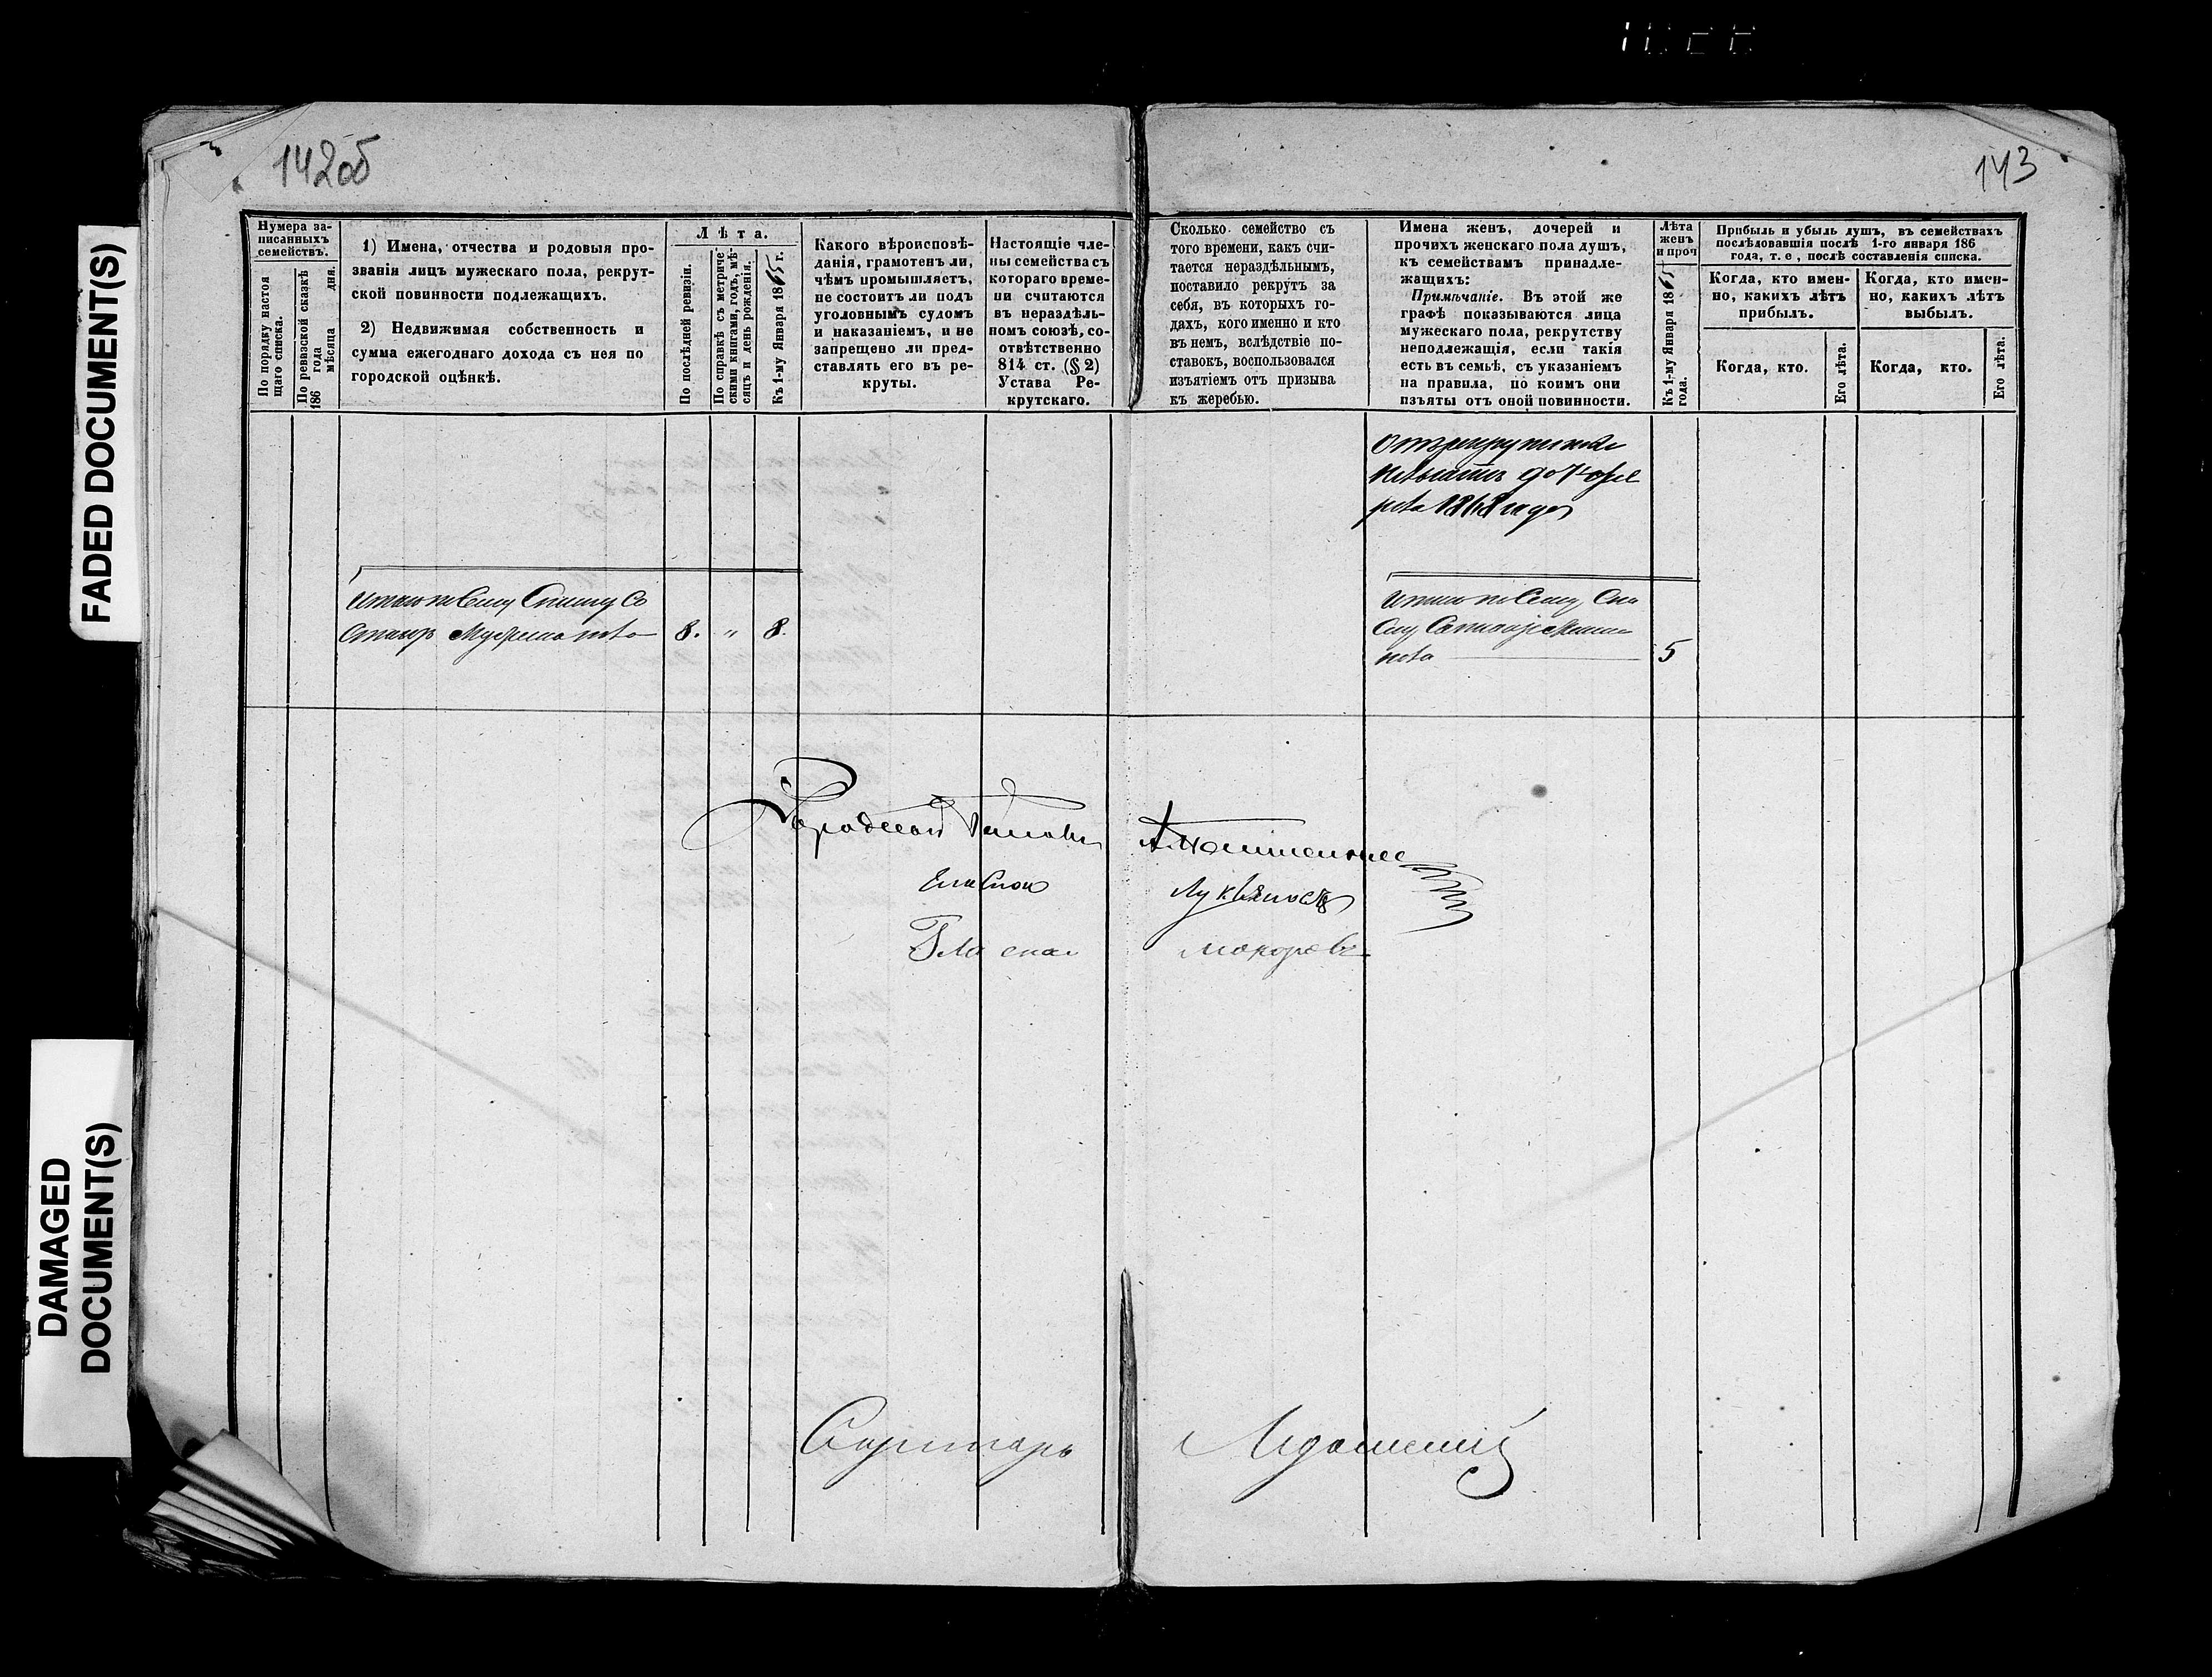 142об
143
FADED DOCUMENT(S)
DAMAGED
DOCUMENT(S)
Нумера за-
писанныхъ
семействъ.
По порядку настоя
щаго списка.
По ревизской сказкѣ
186 года
мѣсяца дня.
1) Имена, отчества и родовыя про-
званія лицъ мужескаго пола, рекрут-
ской повинности подлежащихъ.
2) Недвижимая собственность и
сумма ежегоднаго дохода съ нея по
городской оцѣнкѣ.
Лѣта.
По послѣдней ревизіи.
По справкѣ съ метриче
скими книгами, годъ, мѣ-
сяцъ и день рожденія.
Къ 1-му Января 1865 г.
Какого вѣроисповѣ-
данія, грамотенъ ли,
чѣмъ промышляетъ,
не состоитъ ли подъ
уголовнымъ судомъ
и наказаніемъ, и не
запрещено ли пред-
ставлять его въ ре-
круты.
Настоящіе чле-
ны семейства съ
котораго време-
ни считаются
въ нераздѣль-
номъ союзѣ, со-
отвѣтственно
814 ст. (§ 2)
Устава Ре-
крутскаго.
Сколько семейство съ
того времени, какъ счи-
тается нераздѣльнымъ,
поставило рекрутъ за
себя, въ которыхъ го-
дахъ, кого именно и кто
въ немъ, вслѣдствіе по-
ставокъ, воспользовался
изъятіемъ отъ призыва
къ жеребью.
Имена женъ, дочерей и
прочихъ женскаго пола душъ,
къ семействамъ принадле-
жащихъ:
Примѣчаніе. Въ этой же
графѣ показываются лица
мужескаго пола, рекрутству
неподлежащія, если такія
есть въ семьѣ, съ указаніемъ
на правила, по коимъ они
изъяты отъ оной повинности.
Лѣта
женъ
и проч
Къ 1-му Января 1865
года.
Прибыль и убыль душъ, въ семействахъ
послѣдовавшія послѣ 1-го января 186
года, т. е, послѣ составленія списка.
Когда, кто имен-
но, какихъ лѣтъ
прибылъ.
Когда, кто имен-
но, какихъ лѣтъ
выбылъ.
Когда, кто.
Его лѣта.
Когда, кто.
Его лѣта.
1868 года
Итого по сему списку со
стоитъ мужеска пола 8. „ 8.
Итого по сему спи
ску состоитъ женска
пола 5
Городской Голова
Гласной Лукьяновъ
Гласной Макоревъ
Секретарь